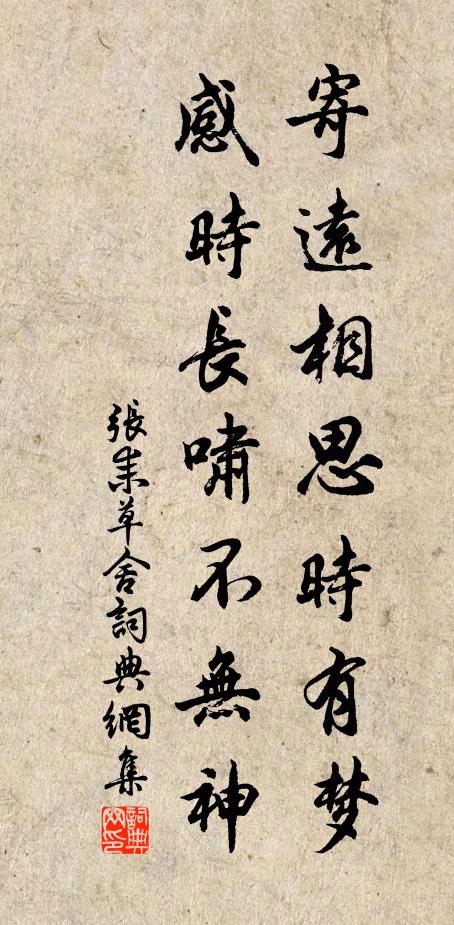 寄遠相思時有梦
感時長嘯不無神
張耒草舍詞典網集
詞典网印